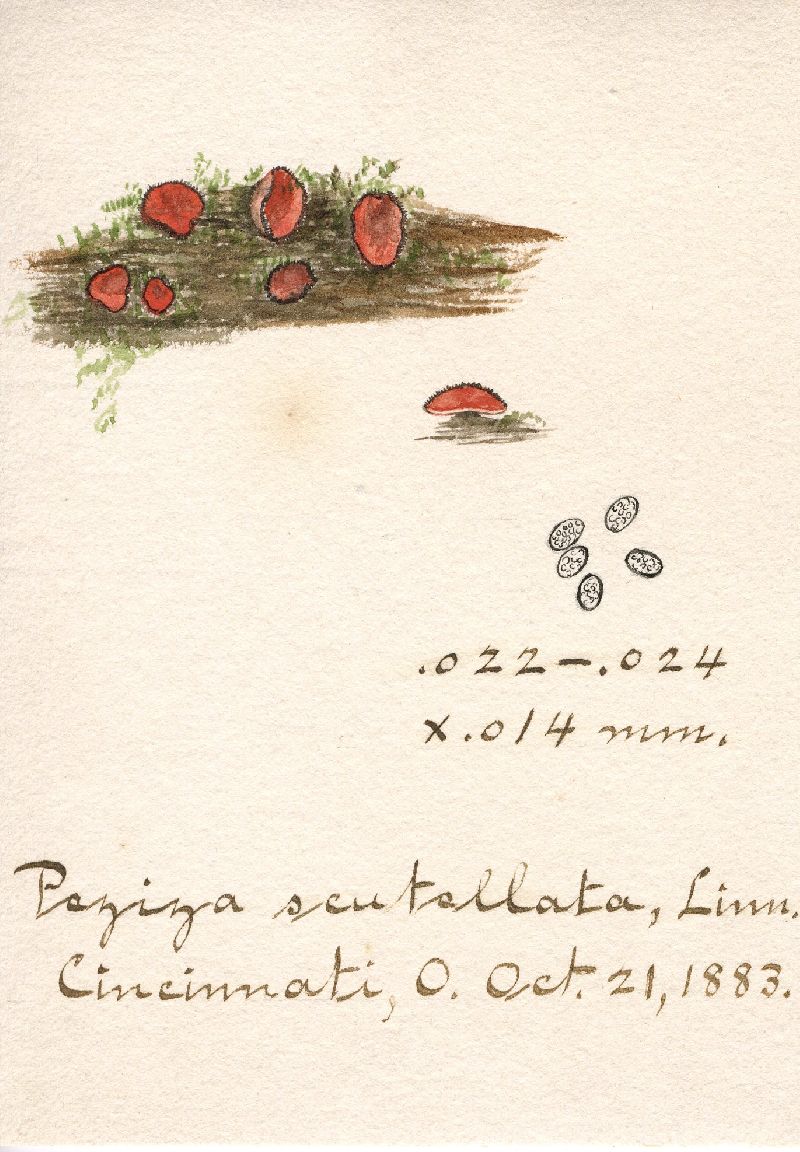 .022–.024
x.014 mm.
Peziza scutellata, Linn.
Cincinnati, O. Oct. 21, 1883.